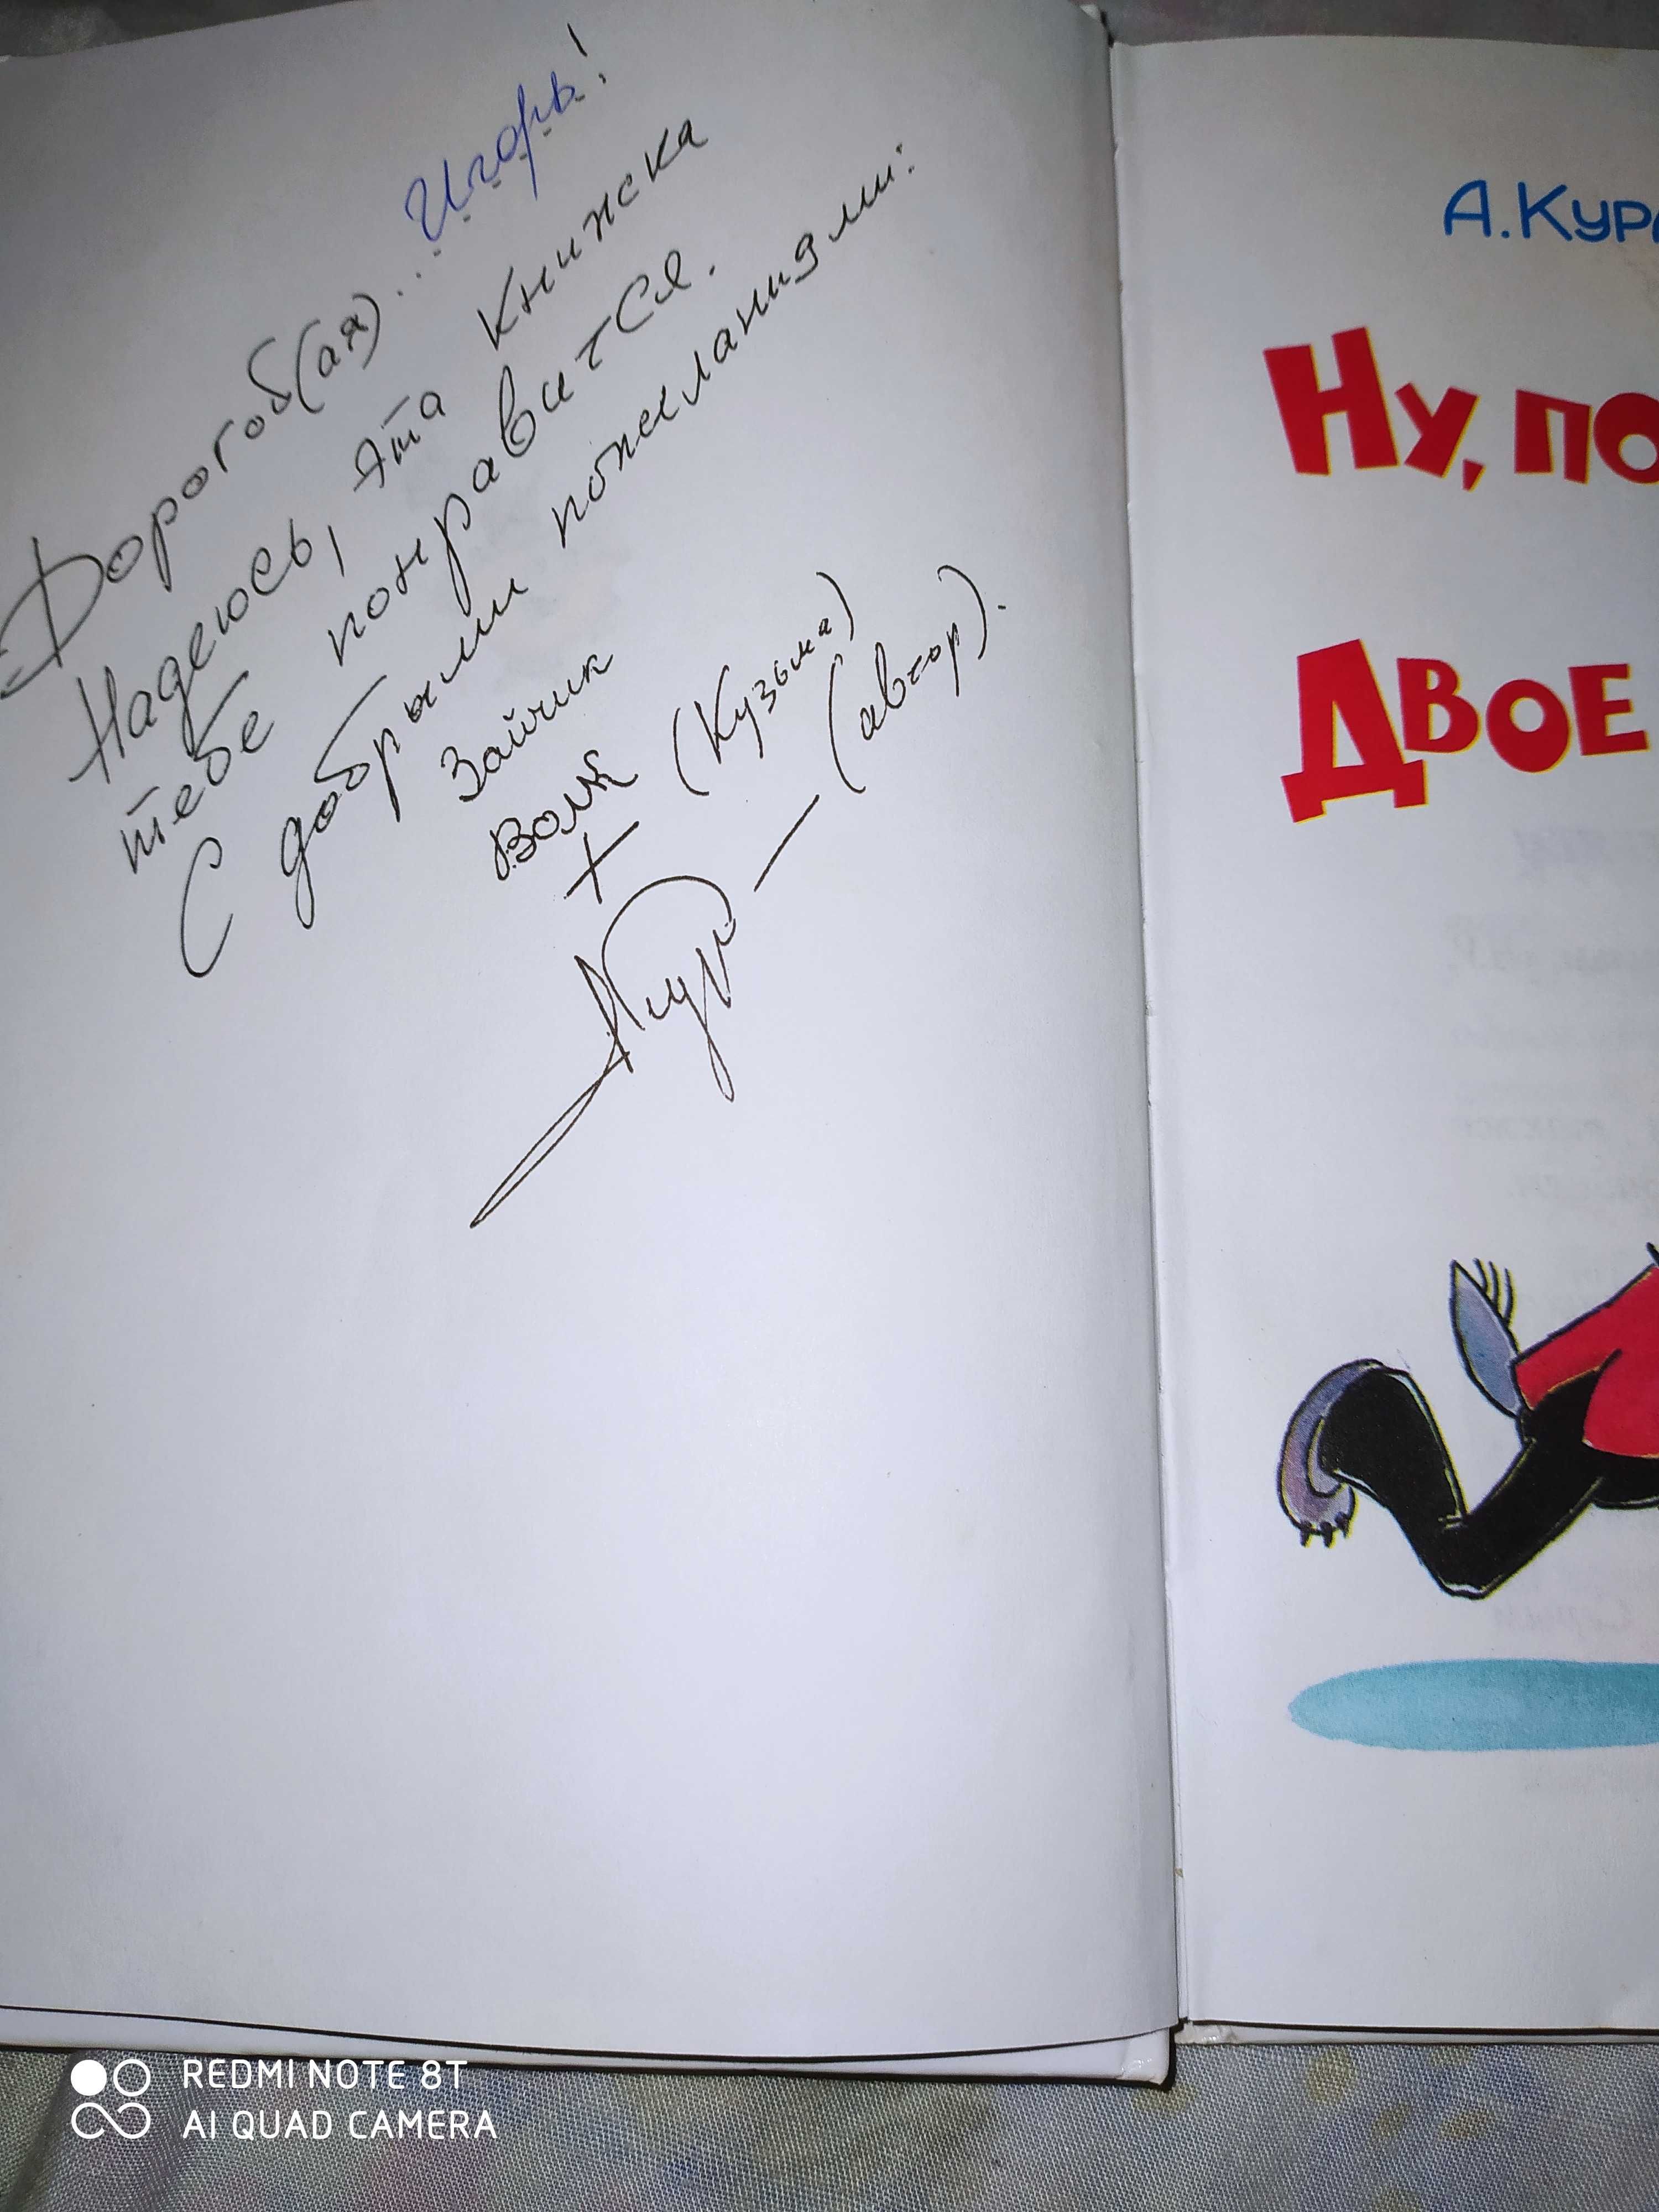 Дорогой(ая)... Игорь!
Надеюсь, эта книжка
тебе понравится.
С добрыми пожеланиями:
Зайчик
Волк (Кузьма)
+
АКур — (автор).
А.Кур
Ну, по
Двое
REDMI NOTE 8T
AI QUAD CAMERA